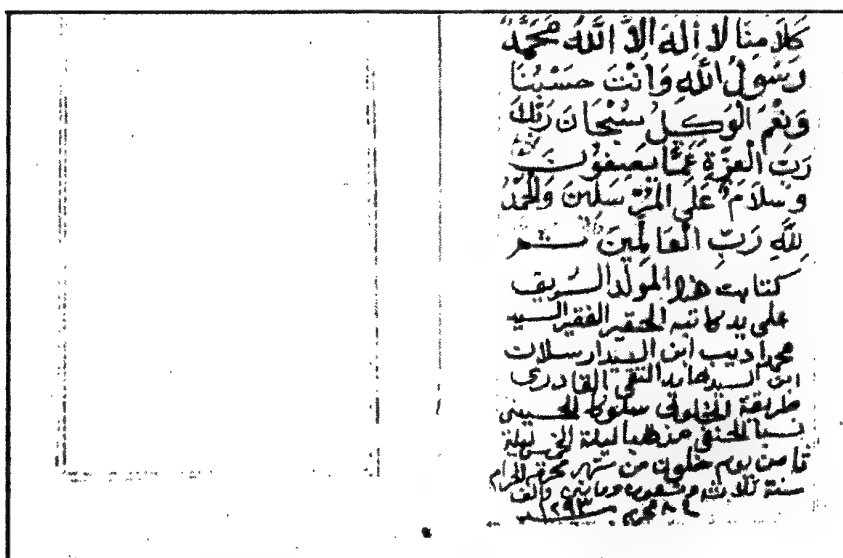 كَلَامِنَا لَا إِلَهَ إِلَّا اللَّهُ مُحَمَّدٌ
رَسُولُ اللَّهِ وَأَنْتَ حَسْبُنَا
وَنِعْمَ الْوَكِيلُ سُبْحَانَ رَبِّكَ
رَبِّ الْعِزَّةِ عَمَّا يَصِفُونَ
وَسَلَامٌ عَلَى الْمُرْسَلِينَ وَالْحَمْدُ
لِلَّهِ رَبِّ الْعَالَمِينَ تمر
كتابت هذا المولد الشريف
على يد كاتبه الحقير الفقير السيد
محمد اديب ابن السيد ارسلان
ابن السيد حامد التقي القادري
طريقة الخلوتي سلوكا الحسيني
نسبا الحنفي مذهبا ليلة الخميس ليلة
ثامن يوم خلون من شهر محرم الحرام
سنة ثلاثه وتسعون ومايتين والف
٨ محرم ١٢٩٣